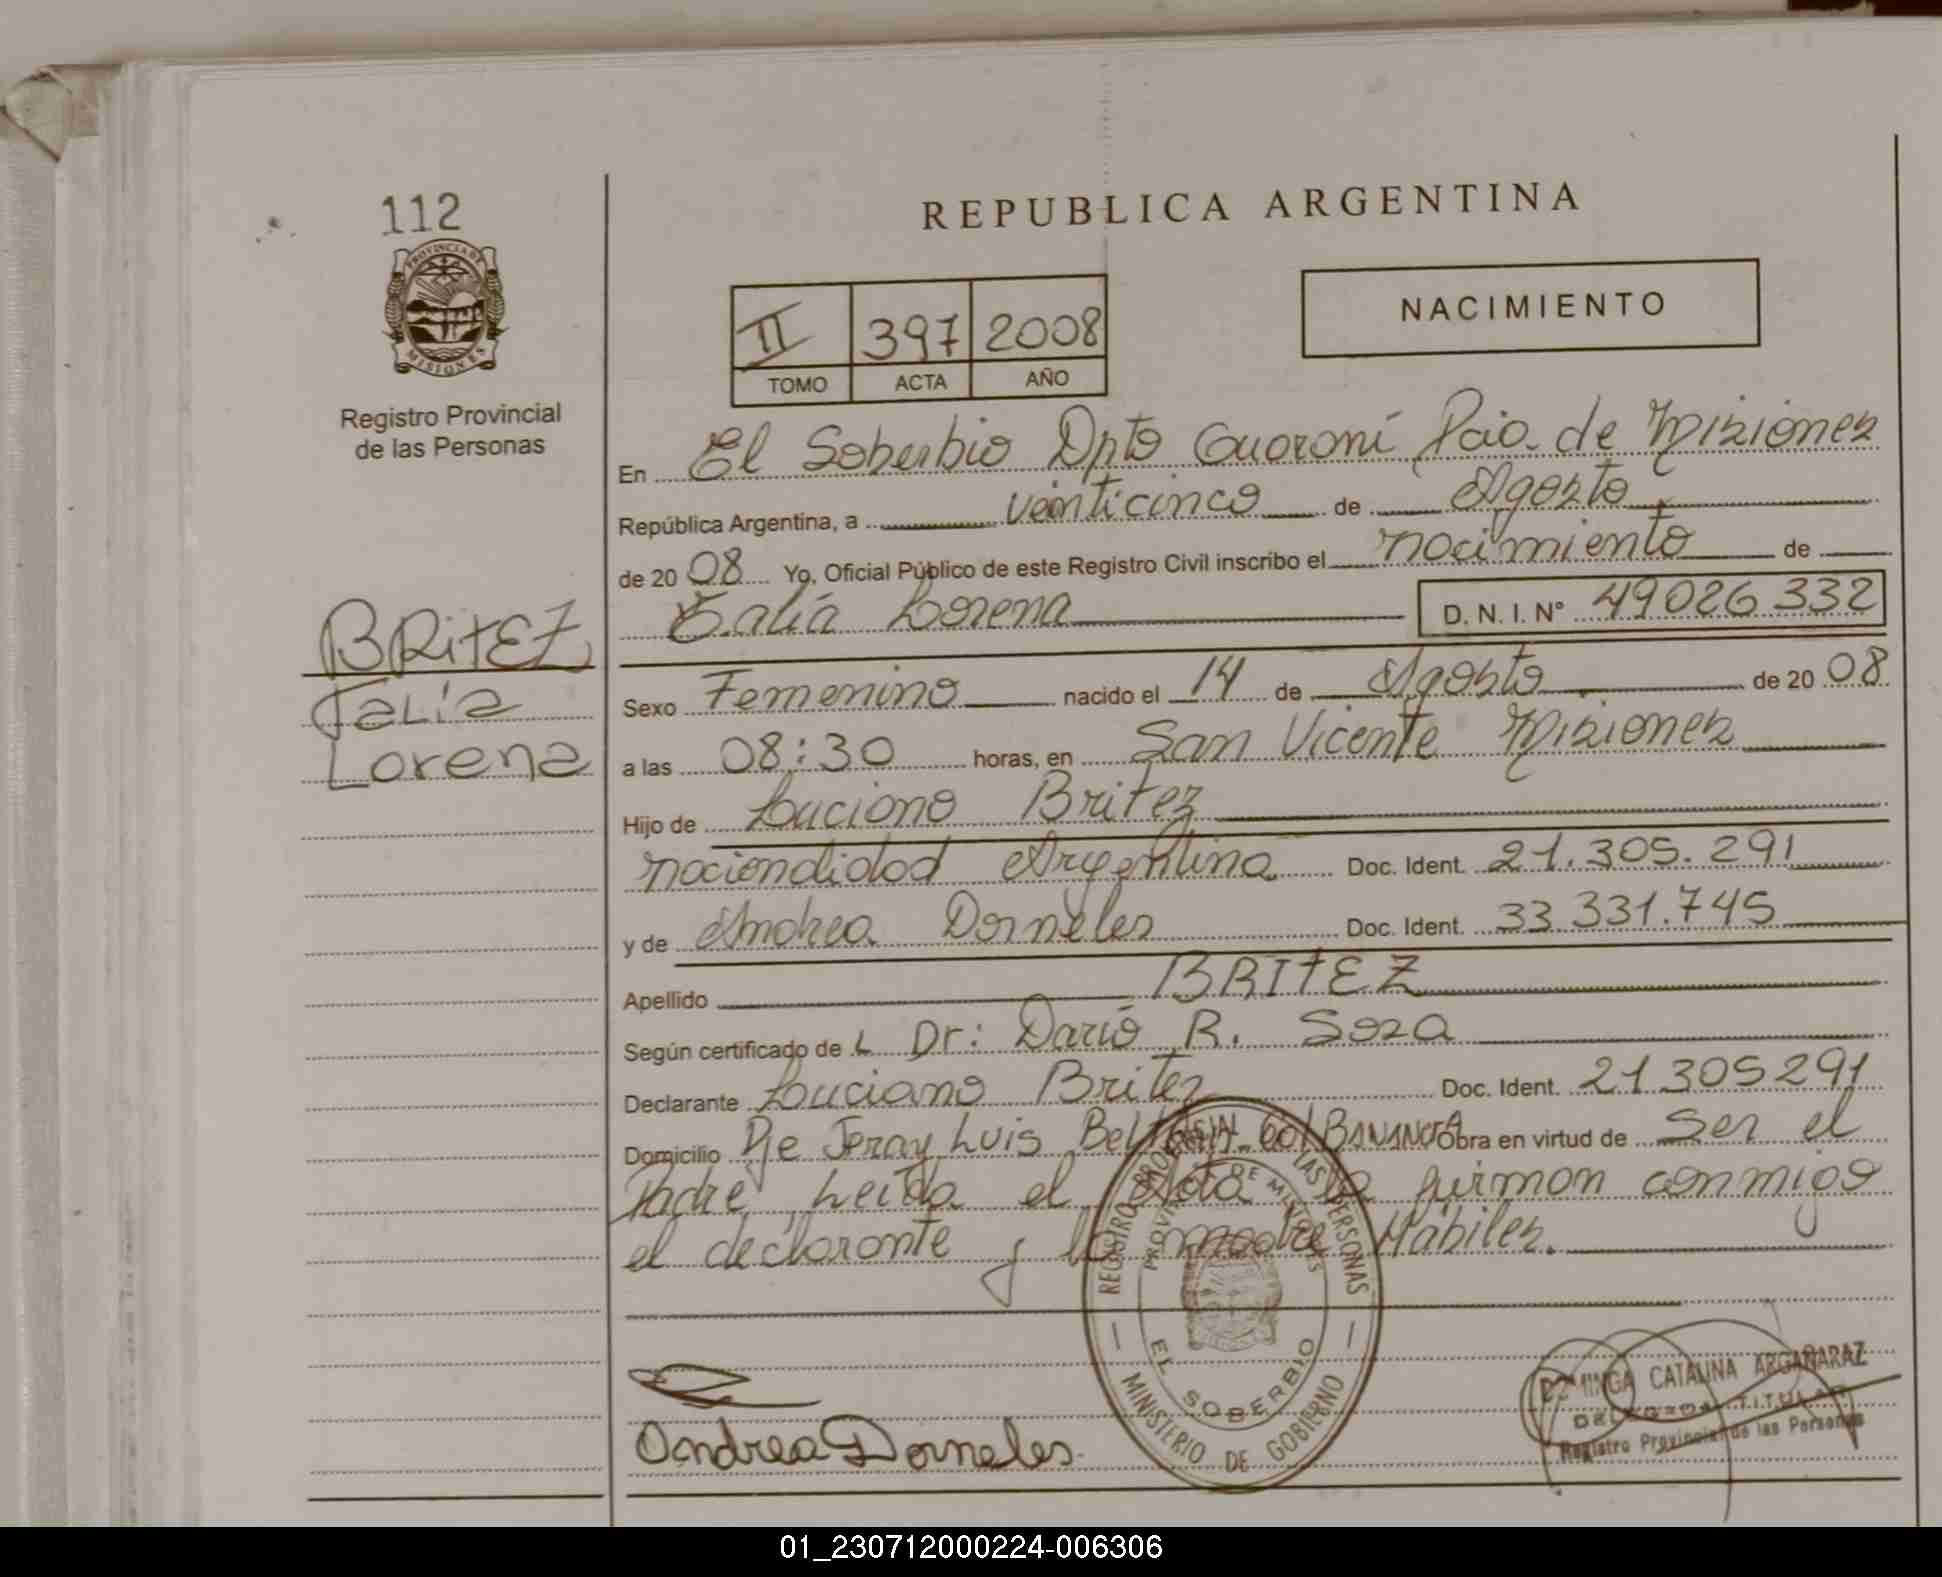 112
PROVINCIA DE
MISIONES
Registro Provincial
de las Personas
REPUBLICA ARGENTINA
II 397 2008
TOMO ACTA AÑO
NACIMIENTO
En El Soberbio Dpto Guaraní Pcia. de Misiones
República Argentina, a veinticinco de Agosto
de 20 08 Yo, Oficial Público de este Registro Civil inscribo el nacimiento de
Talía Lorena D. N. I. Nº 49026332
BRITEZ
Talía
Lorena
Sexo Femenino nacido el 14 de Agosto de 20 08
a las 08:30 horas, en San Vicente Misiones
Hijo de Luciano Britez
naciondidad Argentina Doc. Ident. 21.305.291
y de Andrea Dorneles Doc. Ident. 33 331.745
Apellido BRITEZ
Según certificado de L Dr: Darió R. Soza
Declarante Luciano Britez Doc. Ident. 21305291
Domicilio Pje Luis Obra en virtud de Ser el
Padre, Leída el Acta la firman conmigo
el declarante y la madre Hábiles.
REGISTRO PROVINCIAL DE LAS PERSONAS
PROVINCIA DE MISIONES
EL SOBERBIO
MINISTERIO DE GOBIERNO
Andrea Dorneles
DOMINGA CATALINA ARGAÑARAZ
DELEGADA TITULAR
Registro Provincial de las Personas
01_230712000224-006306